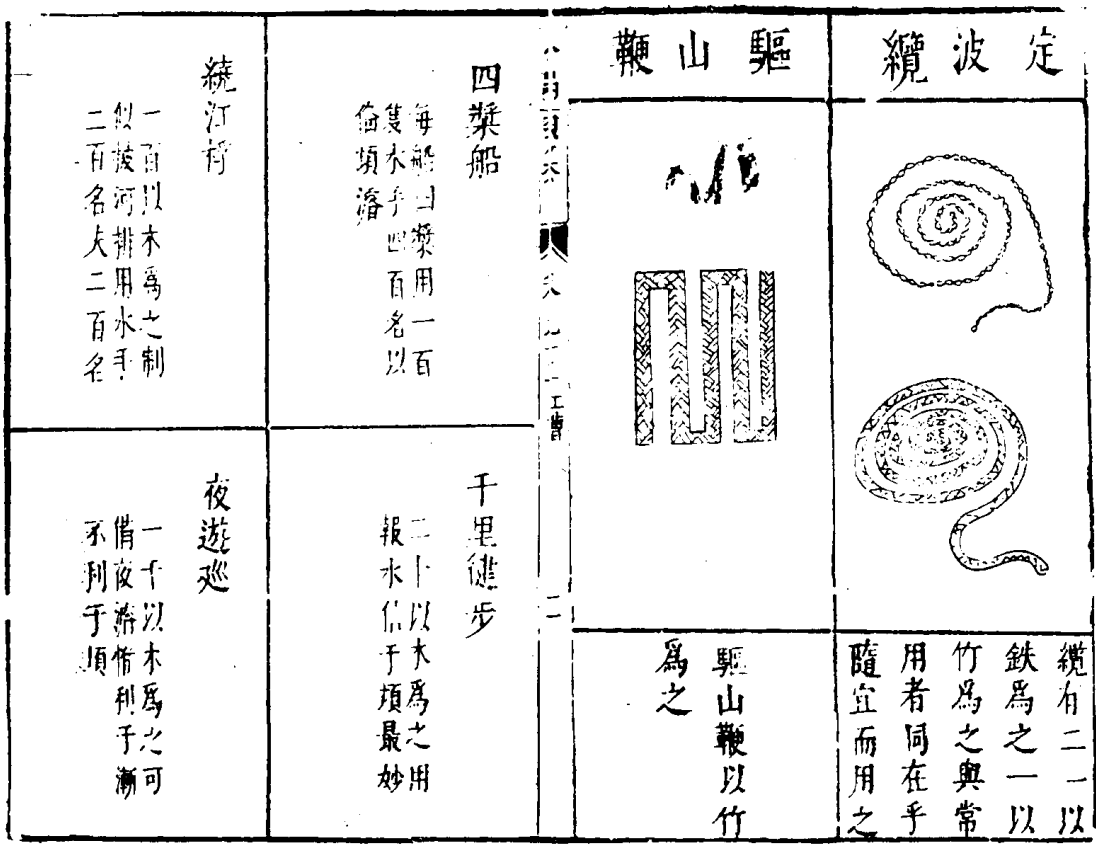 定波纜
纜有二一以
鉄爲之一以
竹爲之與常
用者同在乎
隨宜而用之
驅山鞭
驅山鞭以竹
爲之
工曹
二
四槳船
每船四槳用一百
隻水手四百名以
偹頃濬
千里健步
二十以木爲之用
報水信于頃最妙
繞江桴
一百以木爲之制
似莈河排用水手
二百名夫二百名
夜遊廵
一十以木爲之可
偹夜濬惟利于漸
不利于頃